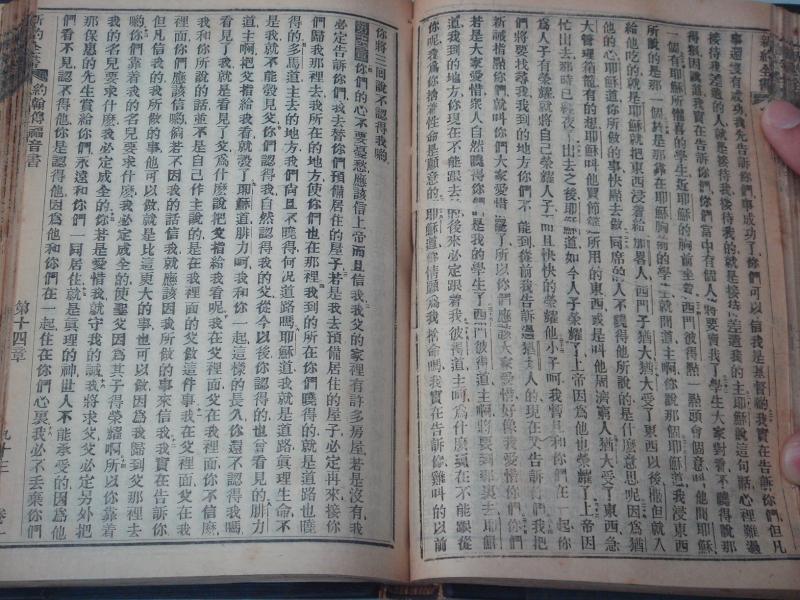 新約全書
事還沒有成功我先告訴你們事成功了你們可以信我是基督的我實在告訴你們但凡
接待我差遣的人就是接待我接待我的就是接待差遣我的主耶穌說這句話心裡難過
得狠因說道我實在告訴你們你們當中有個人將要賣我了學生大家對看不曉得說那
一個有耶穌所憐喜的學生近耶穌的胸前坐着西門彼得點一點頭會個意
所說的是那一個於是那靠在耶穌胸前的學生就問道主啊你說那個耶穌道我浸東西
給他吃的就是耶穌就把東西浸着給加畧人西門子猶大猶大受了東西以後
他的心耶穌道你所做的事快點去做同席的人不曉得他所說的是什麼意思呢因為猶
大管理箱籠有的想耶穌叫他買節上所用的東西或是叫他周濟窮人猶大受了東西急
忙出去那時已經夜了出去之後耶穌道如今人子有榮耀了上帝因為他也榮耀了上帝因
為人子有榮耀就將自己榮耀人子而且快快的榮耀他小子呵我暫且和你們在一起你
們將要找尋我我到的地方你們不能到從前我告訴過猶太人的現在又告訴你們我把
新誡指點你們就叫你們大家愛惜罷了所以你們應該大家愛惜好像我愛惜你們一樣
若是大家愛惜衆人自然曉得你們是我的學生了西門彼得道主啊將要到那裏去耶穌
道我到的地方你現在不能跟去後來必定跟着我彼得道主呵為什麼現在不能跟從
你呢爲你捨着性命是願意的耶穌道你情願爲我捨命嗎我實在告訴你雞叫的以前
你將三回說不認得我喲
你們的心不要憂愁應該信上帝而且信我我父的家裡有許多房屋若是沒有我
必定告訴你們我去替你們預備居住的屋子若是我去預備居住的屋子必定再來接你
們歸我那裡去我所在的地方使你們也在那裡我到的所在你們曉得的就是道路也曉
得的多馬道主去的地方我們尚且不曉得何況道路嗎耶穌道我就是道路真理生命不
是我就不能彀見父你們認得我自然認得我的父從今以後你認得的也曾看見的腓力
道主啊把父指給我看就彀了耶穌道腓力呵我和你一起這樣的長久你還不認得我嗎
看見了我就是看見了父爲什麽說把父指給我看呢我在父裡面父在我裡面你不信麽
我和你所說的話並不是自己作主說的是在我裡面的父做這件事我在父裡面父在我
裡面你們應該信喲倘若不因我的話信我就應該因我所做的事來信我我實在告訴你
但凡信我的我所做的事他可以做就是比這更大的事也可以做因爲我歸到父那裡去
喲你們靠着我的名兒要求什麽我必定成全的使聖父因爲其子得榮耀啊所以你靠着
我的名兒要求什麼我必定成全的你若是愛惜我就守我的誡我將求父父必定另外把
那保惠的先生賞給你們永遠和你們一同居住就是真理的神世人不能承受的因爲他
們看不見認不得他你是認得他因爲他和你們在一起住在你們心裏我必不丢棄你們
新約全書 約翰傳福音書
第十四章
九十三
卷一